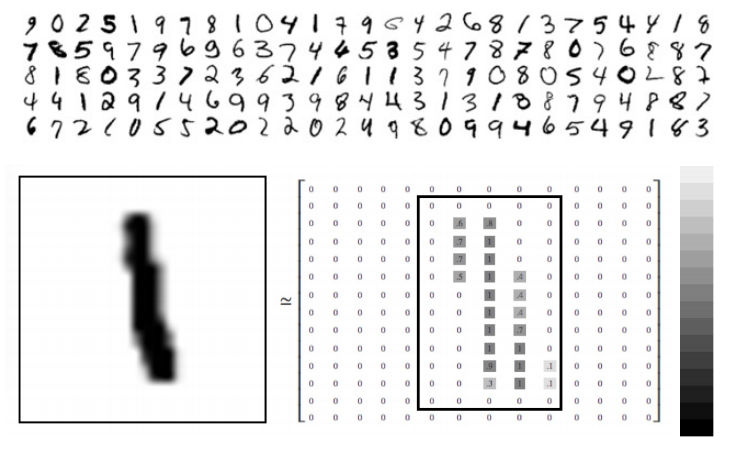 9 0 2 5 1 9 7 8 1 0 4 1 7 9 6 4 2 6 8 1 3 7 5 4 4 1 8
7 8 5 9 7 9 6 9 6 3 7 4 4 5 3 5 4 7 8 7 8 0 7 6 8 8 7
8 1 8 0 3 3 7 2 3 6 2 1 6 1 1 3 7 9 0 8 0 5 4 0 2 8 7
4 4 1 2 9 1 4 6 9 9 3 9 8 4 4 3 1 3 1 8 8 7 9 4 8 8 7
6 7 2 1 0 5 5 2 0 2 2 0 2 4 9 8 0 9 9 4 6 5 4 9 1 8 3
1 ≃
0 0 0 0 0 0 0 0 0 0 0 0 0 0
0 0 0 0 0 0 0 0 0 0 0 0 0 0
0 0 0 0 0 0 .6 .8 0 0 0 0 0 0
0 0 0 0 0 0 .7 1 0 0 0 0 0 0
0 0 0 0 0 0 .7 1 0 0 0 0 0 0
0 0 0 0 0 0 .5 1 .4 0 0 0 0 0
0 0 0 0 0 0 0 1 .4 0 0 0 0 0
0 0 0 0 0 0 0 1 .4 0 0 0 0 0
0 0 0 0 0 0 0 1 .7 0 0 0 0 0
0 0 0 0 0 0 0 1 1 0 0 0 0 0
0 0 0 0 0 0 0 .9 1 .1 0 0 0 0
0 0 0 0 0 0 0 .3 1 .1 0 0 0 0
0 0 0 0 0 0 0 0 0 0 0 0 0 0
0 0 0 0 0 0 0 0 0 0 0 0 0 0